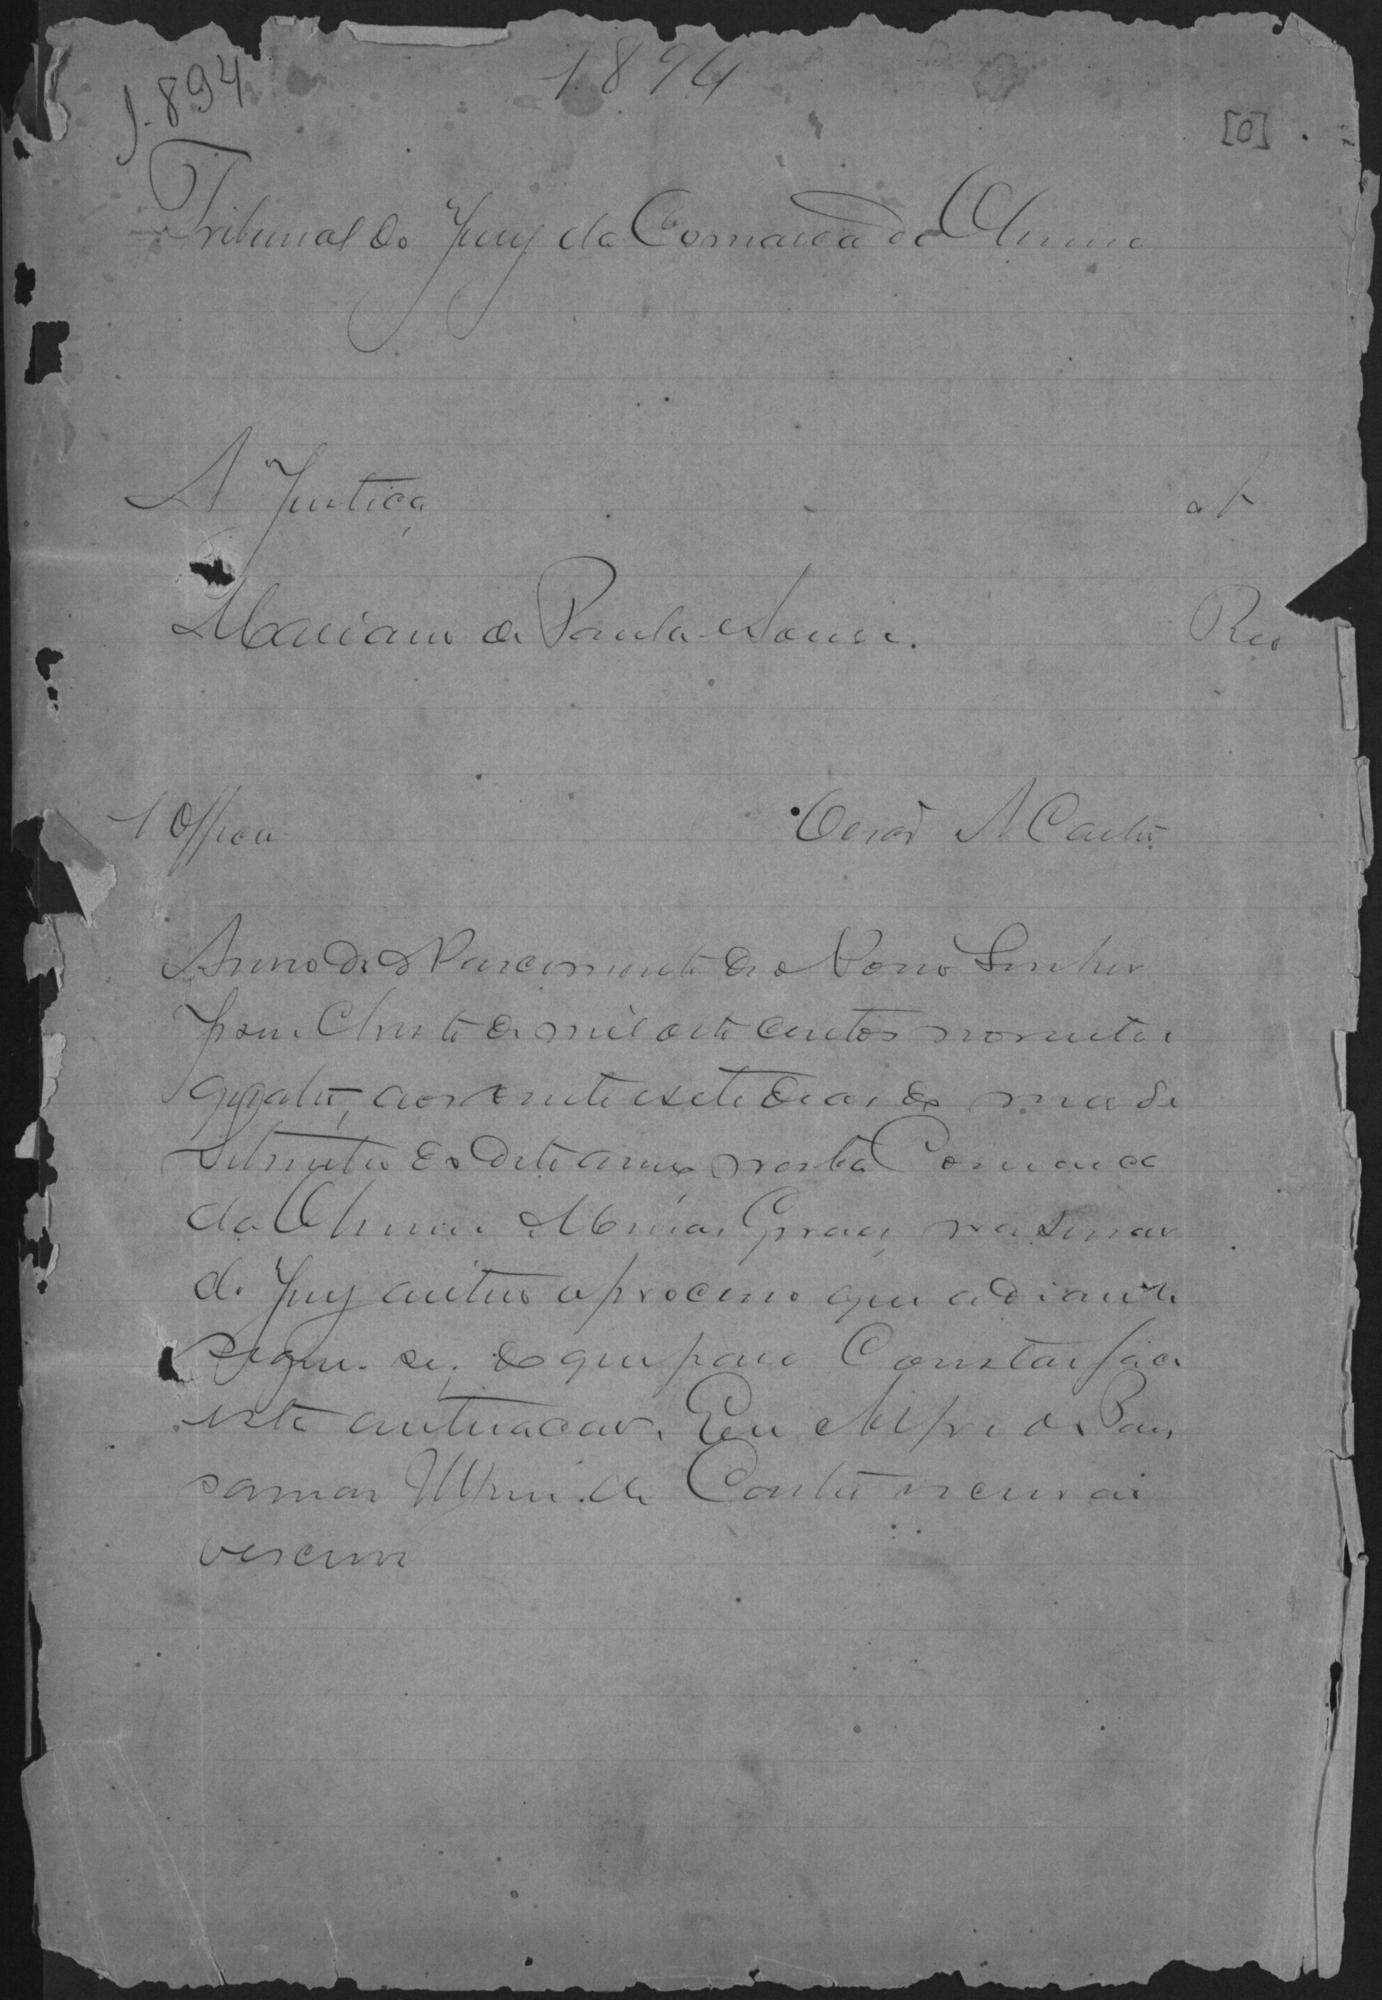 1894
1.894
[0]
Tribunal do Jury da Comarca do
A Justiça At
Mariano de Paula e Souza. Reo
1 Officio Escrivão
Anno do Nascimento de Nosso Senhor
Jesus Christo de mil oito centos noventa e
quatro, aos vinte e sete dias do mez de
Setembro do dito anno nesta Comarca
do Minas Geraes, na
do Jury autuo o processo que adiante
segue-se; do que para Constar faço
esta autuacao. Eu Alfredo
de
escrevi